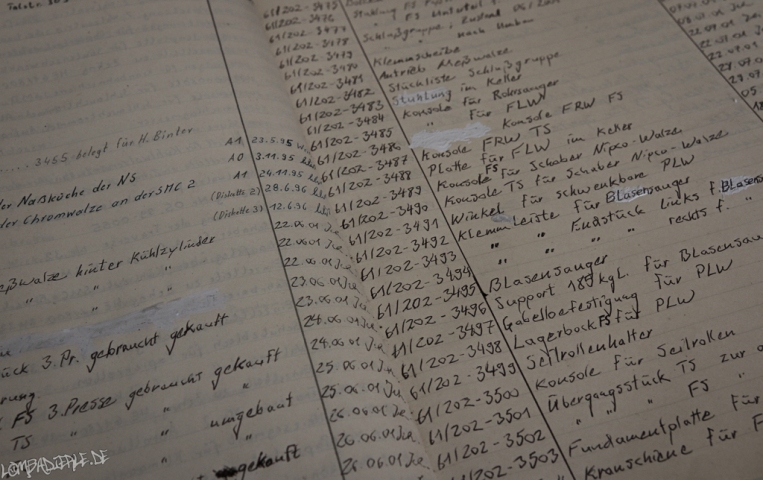 .... 3465 belegt für H. Binter
A1 23.5.95
A0 3.11.95
der Naßküche der NS A1 24.11.95
der Chromwalze an der SMC 2 (Diskette 2) 28.6.96
(Diskette 3) 12.6.96
22.06.01
22.06.01
hinter Kühlzylinder 22.06.01
" " 23.06.01
" " 23.06.01
24.06.01
ück 3. Pr. gebraucht gekauft 24.06.01
25.06.01
FS 3. Presse gebraucht gekauft 25.06.01
TS " " umgebaut 26.06.01
" gekauft 26.06.01
61/202-3475
61/202-3476
61/202-3477 Schloßgruppe,
61/202-3478 " nach Umbau
61/202-3479 Klemmscheibe
61/202-3480 Antrieb Meßwalze
61/202-3481 Stückliste Schloßgruppe
61/202-3482 Stuhlung im Keller
61/202-3483 Konsole für Rohrsauger
61/202-3484 " für FLW
61/202-3485 Konsole FRW FS
61/202-3486 Konsole FRW TS
61/202-3487 Platte für FLW im Keller
61/202-3488 Konsole FS für Schaber Nipco-Walze
61/202-3489 Konsole TS für Schaber Nipco-Walze
61/202-3490 Winkel für schwenkbare PLW
61/202-3491 Klemmleiste für Blasensauger
61/202-3492 " " Endstück links f. Blasens
61/202-3493 " " " rechts f. "
61/202-3494 Blasensauger
61/202-3495 Support 189 kgl. für Blasensau
61/202-3496 Gabelbefestigung für PLW
61/202-3497 Lagerbock FS für PLW
61/202-3498 Seilrollenhalter
61/202-3499 Konsole für Seilrollen
61/202-3500 Übergangsstück TS zur
61/202-3501 " " FS "
61/202-3502 Fundamentplatte für
61/202-3503 Kranschiene für F
22.09.01
27.09.01
27.09.01
LOMPADIERLE.DE